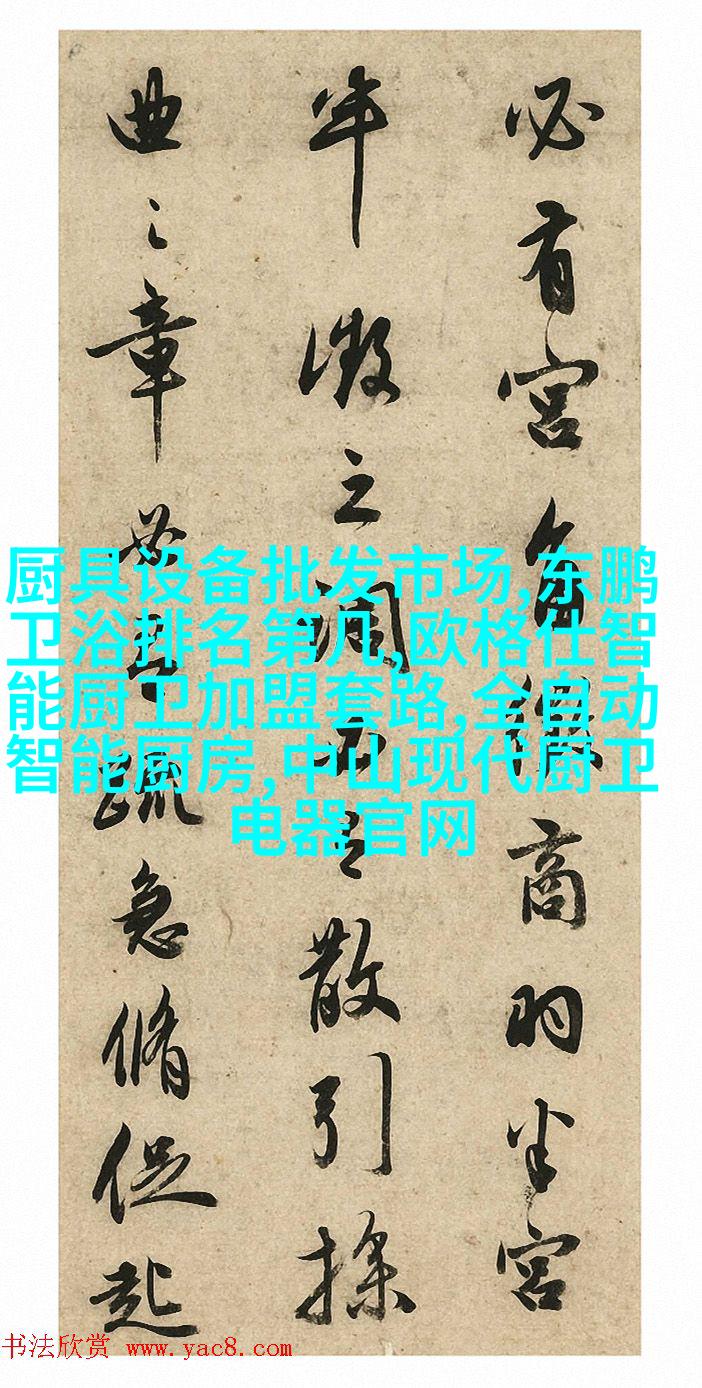 必有宮角商羽半宮
半徵之調散引操
曲之章疏急脩促起
厨具设备批发市场,东鹏
卫浴排名第几,欧格仕智
能厨卫加盟套路,全自动
智能厨房,中山现代厨卫
电器官网
书法欣赏 www.yac8.com